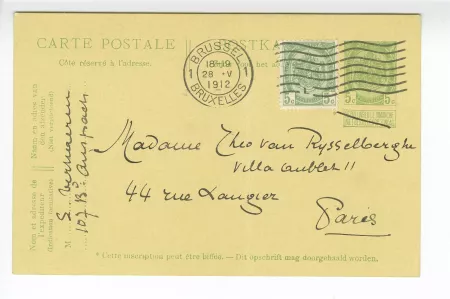 CARTE POSTALE
POSTKA
Côté réservé à l'adresse.
BRUSSEL
1 18-19 1
28 · V
1912
BRUXELLES
5c 5c
5c 5c
Naam en adres van
den afzender
Nom et adresse de
l'expéditeur
M. S. Verhaeren
107 Bd Anspach
Madame Theo van Rysselberghe
Villa Aublet 11
44 rue Laugier
Paris
* Cette inscription peut être biffée. — Dit opschrift mag doorgehaald worden.